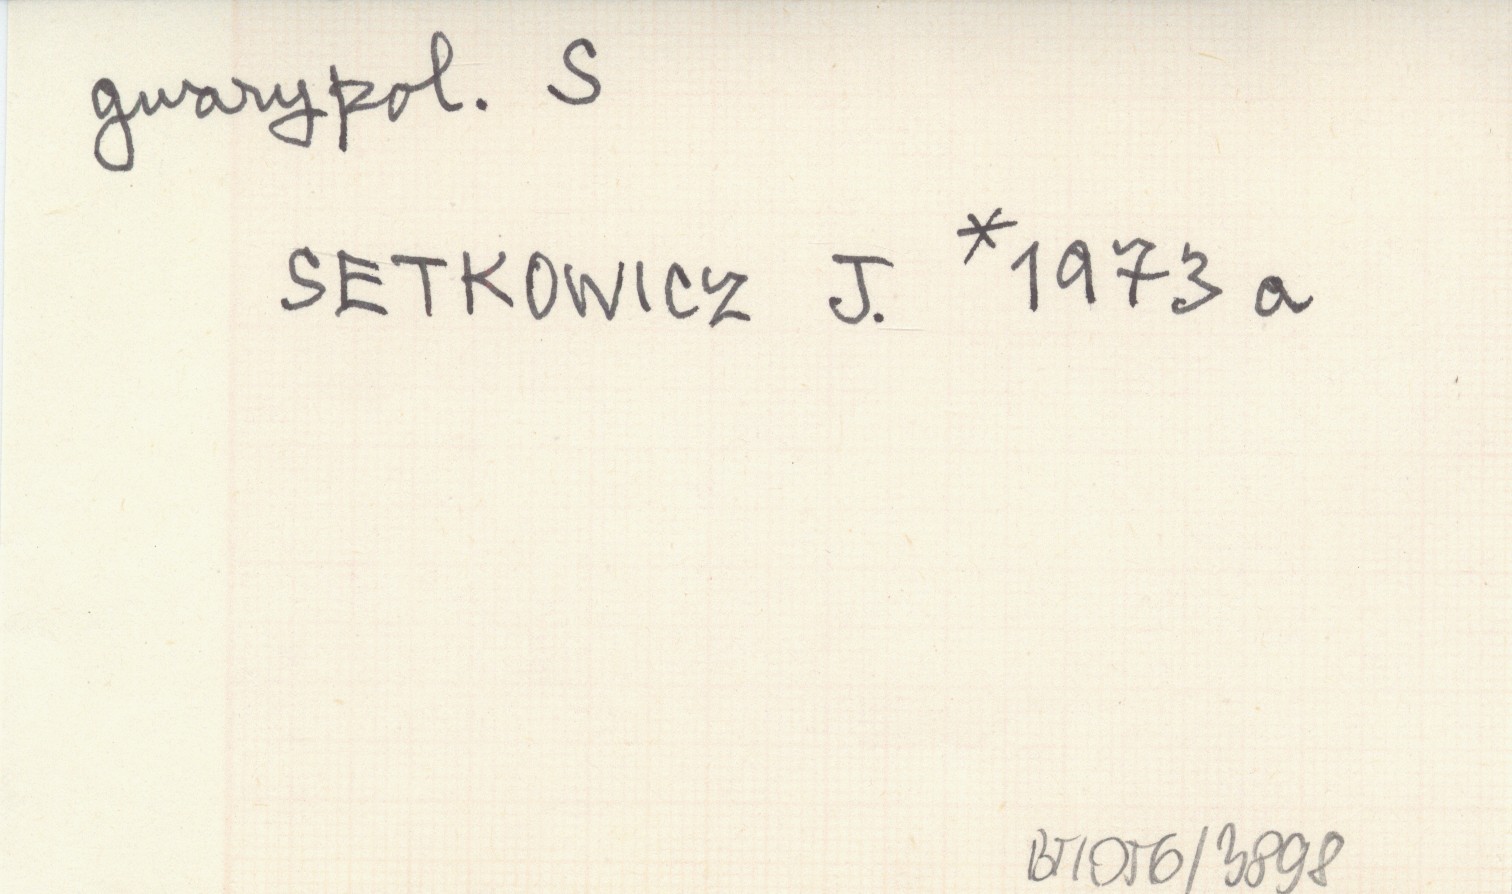 gwary pol. S
SETKOWICZ J. *1973 a
BT1056/3898